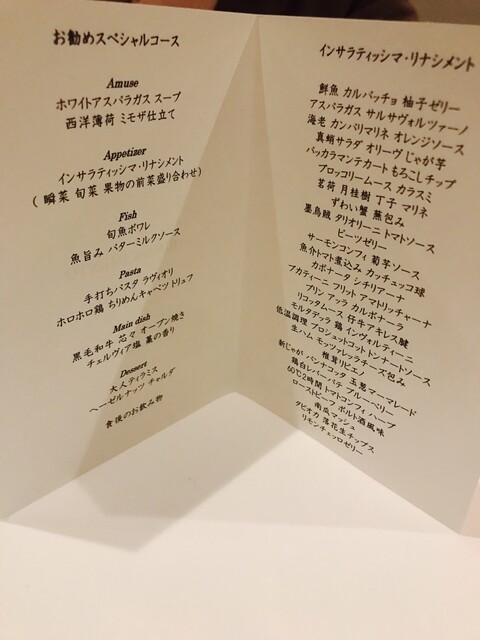 お勧めスペシャルコース
Amuse
ホワイトアスパラガス スープ
西洋薄荷 ミモザ仕立て
Appetizer
インサラティッシマ・リナシメント
( 瞬菜 旬菜 果物の前菜盛り合わせ)
Fish
旬魚ポワレ
魚旨み バターミルクソース
Pasta
手打ちパスタ ラヴィオリ
ホロホロ鶏 ちりめんキャベツ トリュフ
Main dish
黒毛和牛 芯々 オーブン焼き
チェルヴィア塩 藁の香り
Dessert
大人ティラミス
ヘーゼルナッツ チャルダ
食後のお飲み物
インサラティッシマ・リナシメント
鮮魚 カルパッチョ 柚子ゼリー
アスパラガス サルサヴォルツァーノ
海老 カンパリマリネ オレンジソース
真蛸サラダ オリーヴ じゃが芋
バッカラマンテカート もろこしチップ
ブロッコリームース カラスミ
茗荷 月桂樹 丁子 マリネ
ずわい蟹 蕪包み
墨烏賊 タリオリーニ トマトソース
ビーツゼリー
サーモンコンフィ 菊芋ソース
魚介トマト煮込み カッチュッコ球
カポナータ シチリアーナ
ブカティーニ フリット アマトリッチャーナ
プリン アッラ カルボナーラ
リコッタムース 仔牛アキレス腱
モルタデッラ 鶏 インヴォルティーニ
低温調理 プロシュットコット トンナートソース
生ハム モッツァレッラチーズ包み
椎茸リピエノ
新じゃが パンナコッタ 玉葱マーマレード
鶏白レバーパテ ブルーベリー
60℃2時間 トマトコンフィ ハーブ
ローストビーフ ポルト酒風味
南瓜マッシュ
タピオカ 落花生チップス
リモンチェッロゼリー